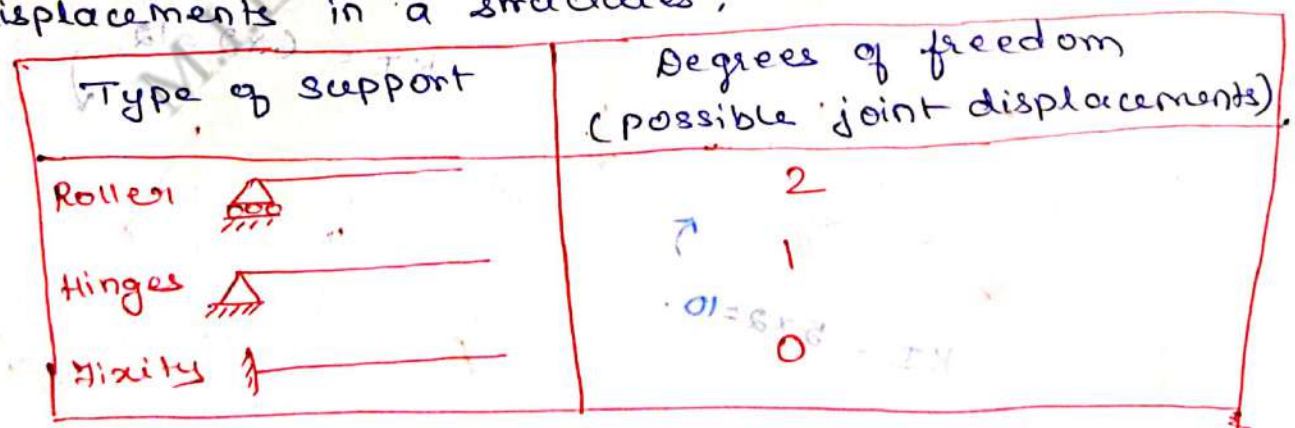 isplacements in a structures.
Type of support
Degrees of freedom
(possible joint displacements).
Roller 2
Hinges 1
Fixity 0